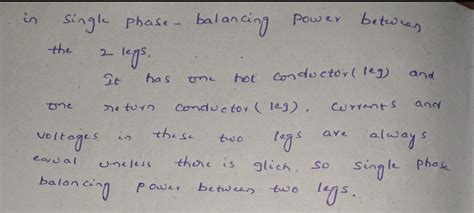 in single phase - balancing power between
the 2 legs.
It has one hot conductor (leg) and
one return conductor (leg). currents and
voltages in these two legs are always
eaual uneless there is glich. so single phase
baloncing power between two legs.